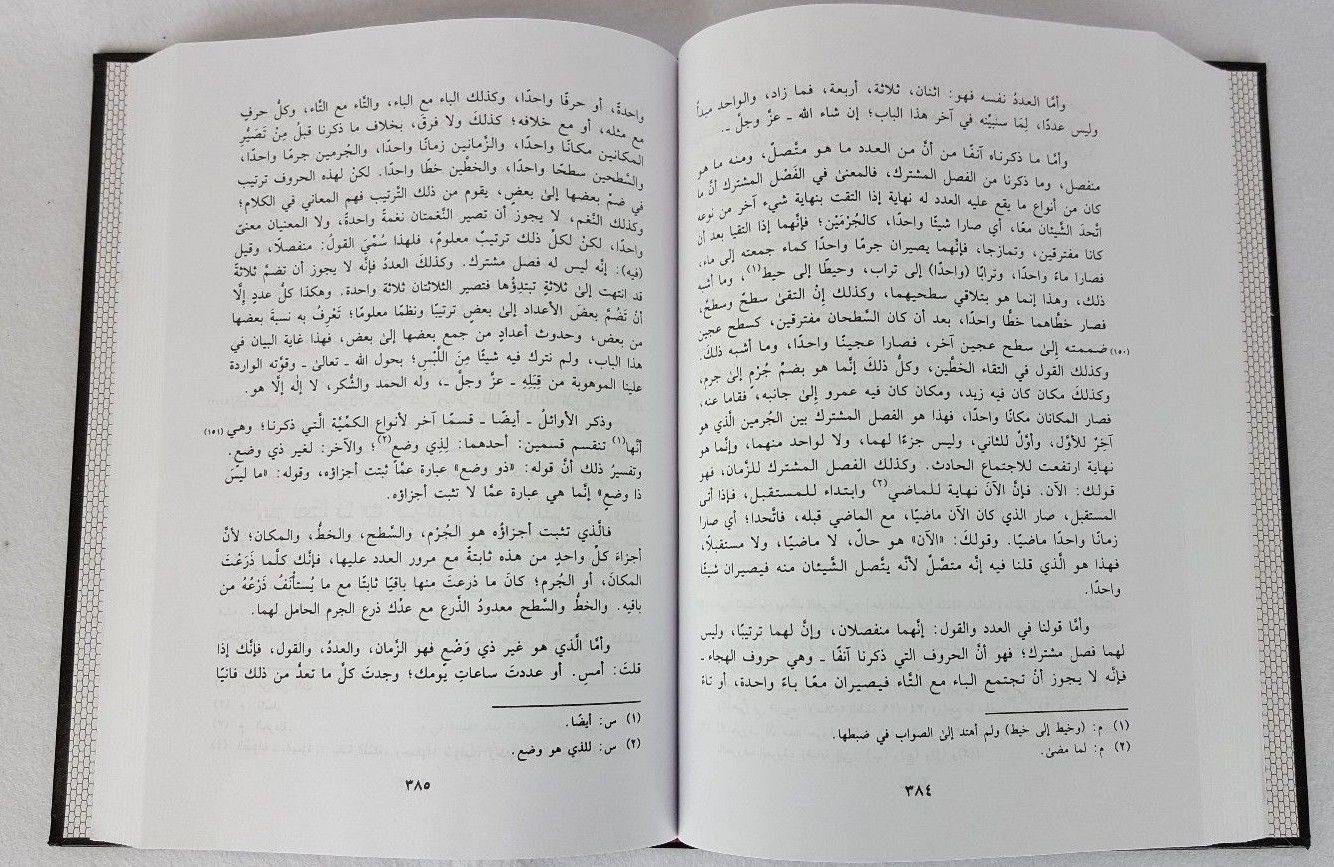 وأمَّا العددُ نفسه فهو: اثنان، ثلاثة، أربعة، فما زاد، والواحد مبدأ
وليس عددًا، لِمَا سنبيِّنه في آخر هذا الباب؛ إن شاء الله ـ عزَّ وجلَّ ـ.
وأمَّا ما ذكرناه آنفًا من أنَّ من العدد ما هو متَّصلٌ، ومنه ما هو
منفصل، وما ذكرنا من الفصل المشترك، فالمعنىٰ في الفَصْل المشترك أنَّ ما
كان من أنواع ما يقع عليه العدد له نهاية إذا التقت بنهاية شيء آخر من نوعه
اتَّحدَ الشَّيئان معًا، أي صارا شيئًا واحدًا، كالجُرْمَيْن؛ فإنَّهما إذا التقيا بعد أن
كانا مفترقين، وتمازجا، فإنَّهما يصيران جرمًا واحدًا كماء جمعته إلى ماء،
فصارا ماءً واحدًا، وترابًا (واحدًا) إلى تراب، وحيطًا إلى حيط(١)، وما أشبه
ذلك، وهذا إنما هو بتلاقي سطحيهما، وكذلك إنْ التقىٰ سطحٌ وسطحٌ،
فصار خطَّاهما خطًّا واحدًا، بعد أن كان السَّطحان مفترقين، كسطح عجين
(١٥٠) ضممته إلىٰ سطح عجين آخر، فصارا عجينًا واحدًا، وما أشبه ذلك.
وكذلك القول في التقاء الخطَّين، وكلُّ ذلك إنَّما هو بضمِّ جُرْمٍ إلىٰ جرم،
وكذلك مكان كان فيه زيد، ومكان كان فيه عمرو إلىٰ جانبه، فقاما عنه،
فصار المكانان مكانًا واحدًا، فهذا هو الفصل المشترك بين الجُرمين الَّذي هو
آخِرٌ للأوَّل، وأوَّلٌ للثاني، وليس جزءًا لهما، ولا لواحد منهما، وإنَّما هو
نهاية ارتفعت للاجتماع الحادث. وكذلك الفصل المشترك للزَّمان، فهو
قولك: الآن. فإنَّ الآنَ نهاية للماضي(٢) وابتداء للمستقبل، فإذا أتىٰ
المستقبل، صار الذي كان الآن ماضيًا، مع الماضي قبله، فاتَّحدا؛ أي صارا
زمانًا واحدًا ماضيًا. وقولكَ: «الآن» هو حالٌ، لا ماضيًا، ولا مستقبلًا،
فهذا هو الَّذي قلنا فيه إنَّه متصِّلٌ لأنه يتَّصل الشَّيئان منه فيصيران شيئًا
واحدًا.
وأمَّا قولنا في العدد والقول: إنَّهما منفصلان، وإنَّ لهما ترتيبًا، وليس
لهما فصل مشترك؛ فهو أنَّ الحروف التي ذكرنا آنفًا ـ وهي حروف الهجاء ـ
فإنَّه لا يجوز أنْ تجتمع الباء مع التَّاء فيصيران معًا باءً واحدة، أو تاءً
(١) م: (وخيط إلى خيط) ولم أهتد إلىٰ الصواب في ضبطها.
(٢) م: لما مضىٰ.
٣٨٤
واحدةً، أو حرفًا واحدًا، وكذلك الباء مع الباء، والتَّاء مع التَّاء، وكلُّ حرفٍ
مع مثله، أو مع خلافه؛ كذلكَ ولا فرقَ، بخلاف ما ذكرنا قبلُ مِنْ تَصَيُّرِ
المكانين مكانًا واحدًا، والزَّمانين زمانًا واحدًا، والجُرمين جرمًا واحدًا،
والسَّطحين سطحًا واحدًا، والخطَّين خطًّا واحدًا. لكنْ لهذه الحروف ترتيب
في ضمِّ بعضها إلىٰ بعضٍ، يقوم من ذلك التَّرتيب فهم المعاني في الكلام؛
وكذلك النَّغم، لا يجوز أن تصير النَّغمتان نغمةً واحدةً، ولا المعنيان معنىً
واحدًا، لكنْ لكلِّ ذلك ترتيبٌ معلومٌ، فلهذا سُمِّيَ القولُ: منفصلًا، وقيل
(فيه): إنَّه ليس له فصل مشترك. وكذلكَ العددُ فإنَّه لا يجوز أن تضمَّ ثلاثةً
قد انتهت إلىٰ ثلاثةٍ تبتدِؤُها فتصير الثلاثتان ثلاثة واحدة. وهكذا كلُّ عددٍ إلَّا
أنْ تَضُمَّ بعضَ الأعداد إلىٰ بعض ترتيبًا ونظمًا معلومًا؛ تَعْرِفُ به نسبةَ بعضها
من بعض، وحدوث أعدادٍ من جمع بعضها إلىٰ بعض، فهذا غاية البيان في
هذا الباب، ولم نترك فيه شيئًا مِنَ اللَّبْسِ؛ بحول الله ـ تعالىٰ ـ وقوَّته الواردة
علينا الموهوبة من قِبَلِهِ ـ عزَّ وجلَّ ـ، وله الحمد والشُّكر، لا إلٰه إلَّا هو.
وذكر الأوائلُ ـ أيضًا ـ قسمًا آخر لأنواع الكمِّيَّة الَّتي ذكرنا؛ وهي (١٥١)
أنَّها(١) تنقسم قسمين: أحدهما: لِذِي وضعٍ(٢)؛ والآخر: لغير ذي وضعٍ.
وتفسيرُ ذلك أنَّ قوله: «ذو وضعٍ» عبارة عمَّا ثبتت أجزاؤه، وقوله: «ما ليسَ
ذا وضعٍ» إنَّما هي عبارة عمَّا لا تثبت أجزاؤه.
فالَّذي تثبت أجزاؤُه هو الجُرْم، والسَّطح، والخطُّ، والمكان؛ لأنَّ
أجزاءَ كلِّ واحدٍ من هذه ثابتةٌ مع مرور العدد عليها، فإنَّك كلَّما ذَرَعْتَ
المكانَ، أو الجُرم؛ كانَ ما ذرعتَ منها باقيًا ثابتًا مع ما يُستأنَفُ ذَرْعُهُ من
باقيه. والخطُّ والسَّطح معدودُ الذَّرع مع عدِّك ذرع الجرم الحامل لهما.
وأمَّا الَّذي هو غير ذي وَضْعٍ فهو الزَّمان، والعددُ، والقول، فإنَّك إذا
قلتَ: أمسِ. أو عددتَ ساعاتِ يومك؛ وجدتَ كلَّ ما تعدُّ من ذلك فانيًا
(١) س: أيضًا.
(٢) س: للذي هو وضع.
٣٨٥